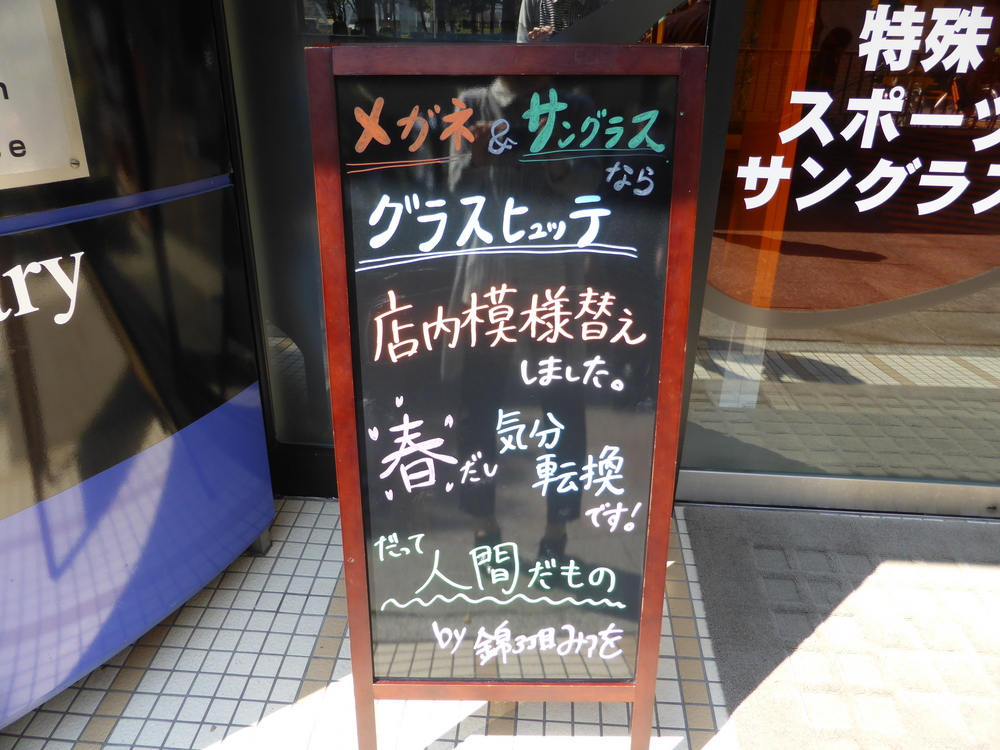 メガネ&サングラス
なら
グラスヒュッテ
店内模様替え
しました。
春だし
気分
転換
です!
だって
人間だもの
by 錦3丁目みつを
特殊
スポーツ
サングラス
ary